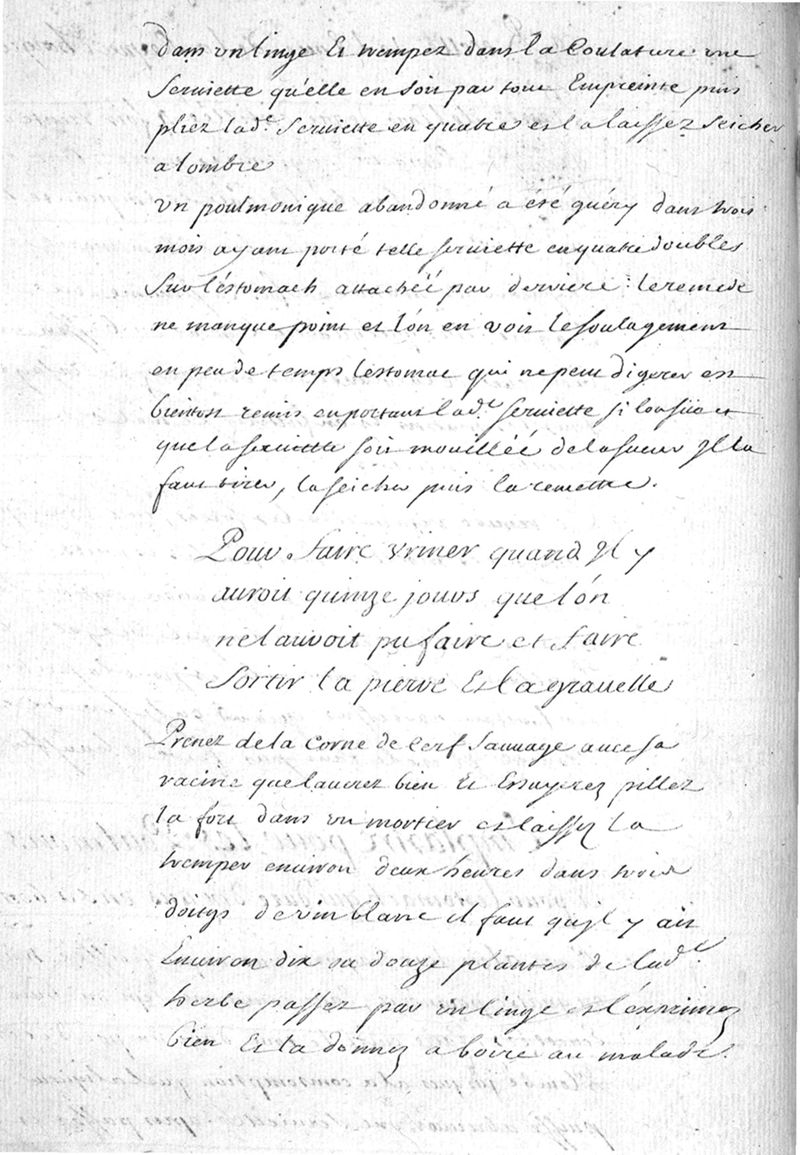 dans un linge Et trempez dans la Coulature une
Seruiette qu'elle en soit par tout Empreinte puis
pliez lad.e Seruiette en quatre et la laissez seicher
a lombre
Un poulmonique abandonné a été guéry dans trois
mois ayant porté telle seruiette en quatre doubles
Sur l'estomach attachéé par derriere : le remede
ne manque point et l'ón en voit le soulagement
en peu de temps l'estomac qui ne peut digerer est
bientost remis en portant lad.e seruiette si lon süe et
que la seruiette soit mouilléé de la sueur Il la
faut tirer, la seicher puis la remettre.
Pour faire Vriner quand Il y
auroit quinze jours que l'ón
ne l'auroit pu faire et faire
Sortir la pierre Et la grauelle
Prenez de la Corne de Cerf Sauuage auec sa
racine que lauerez bien Et Essuyerez pillez
la fort dans un mortier et laissez la
tremper enuiron deux heures dans trois
doitgs de vin blanc il faut qu'jl y ait
Enuiron dix ou douze plantes de lad.e
herbe passez par un linge et l'exprimez
bien Et la donnez a boire au malade.